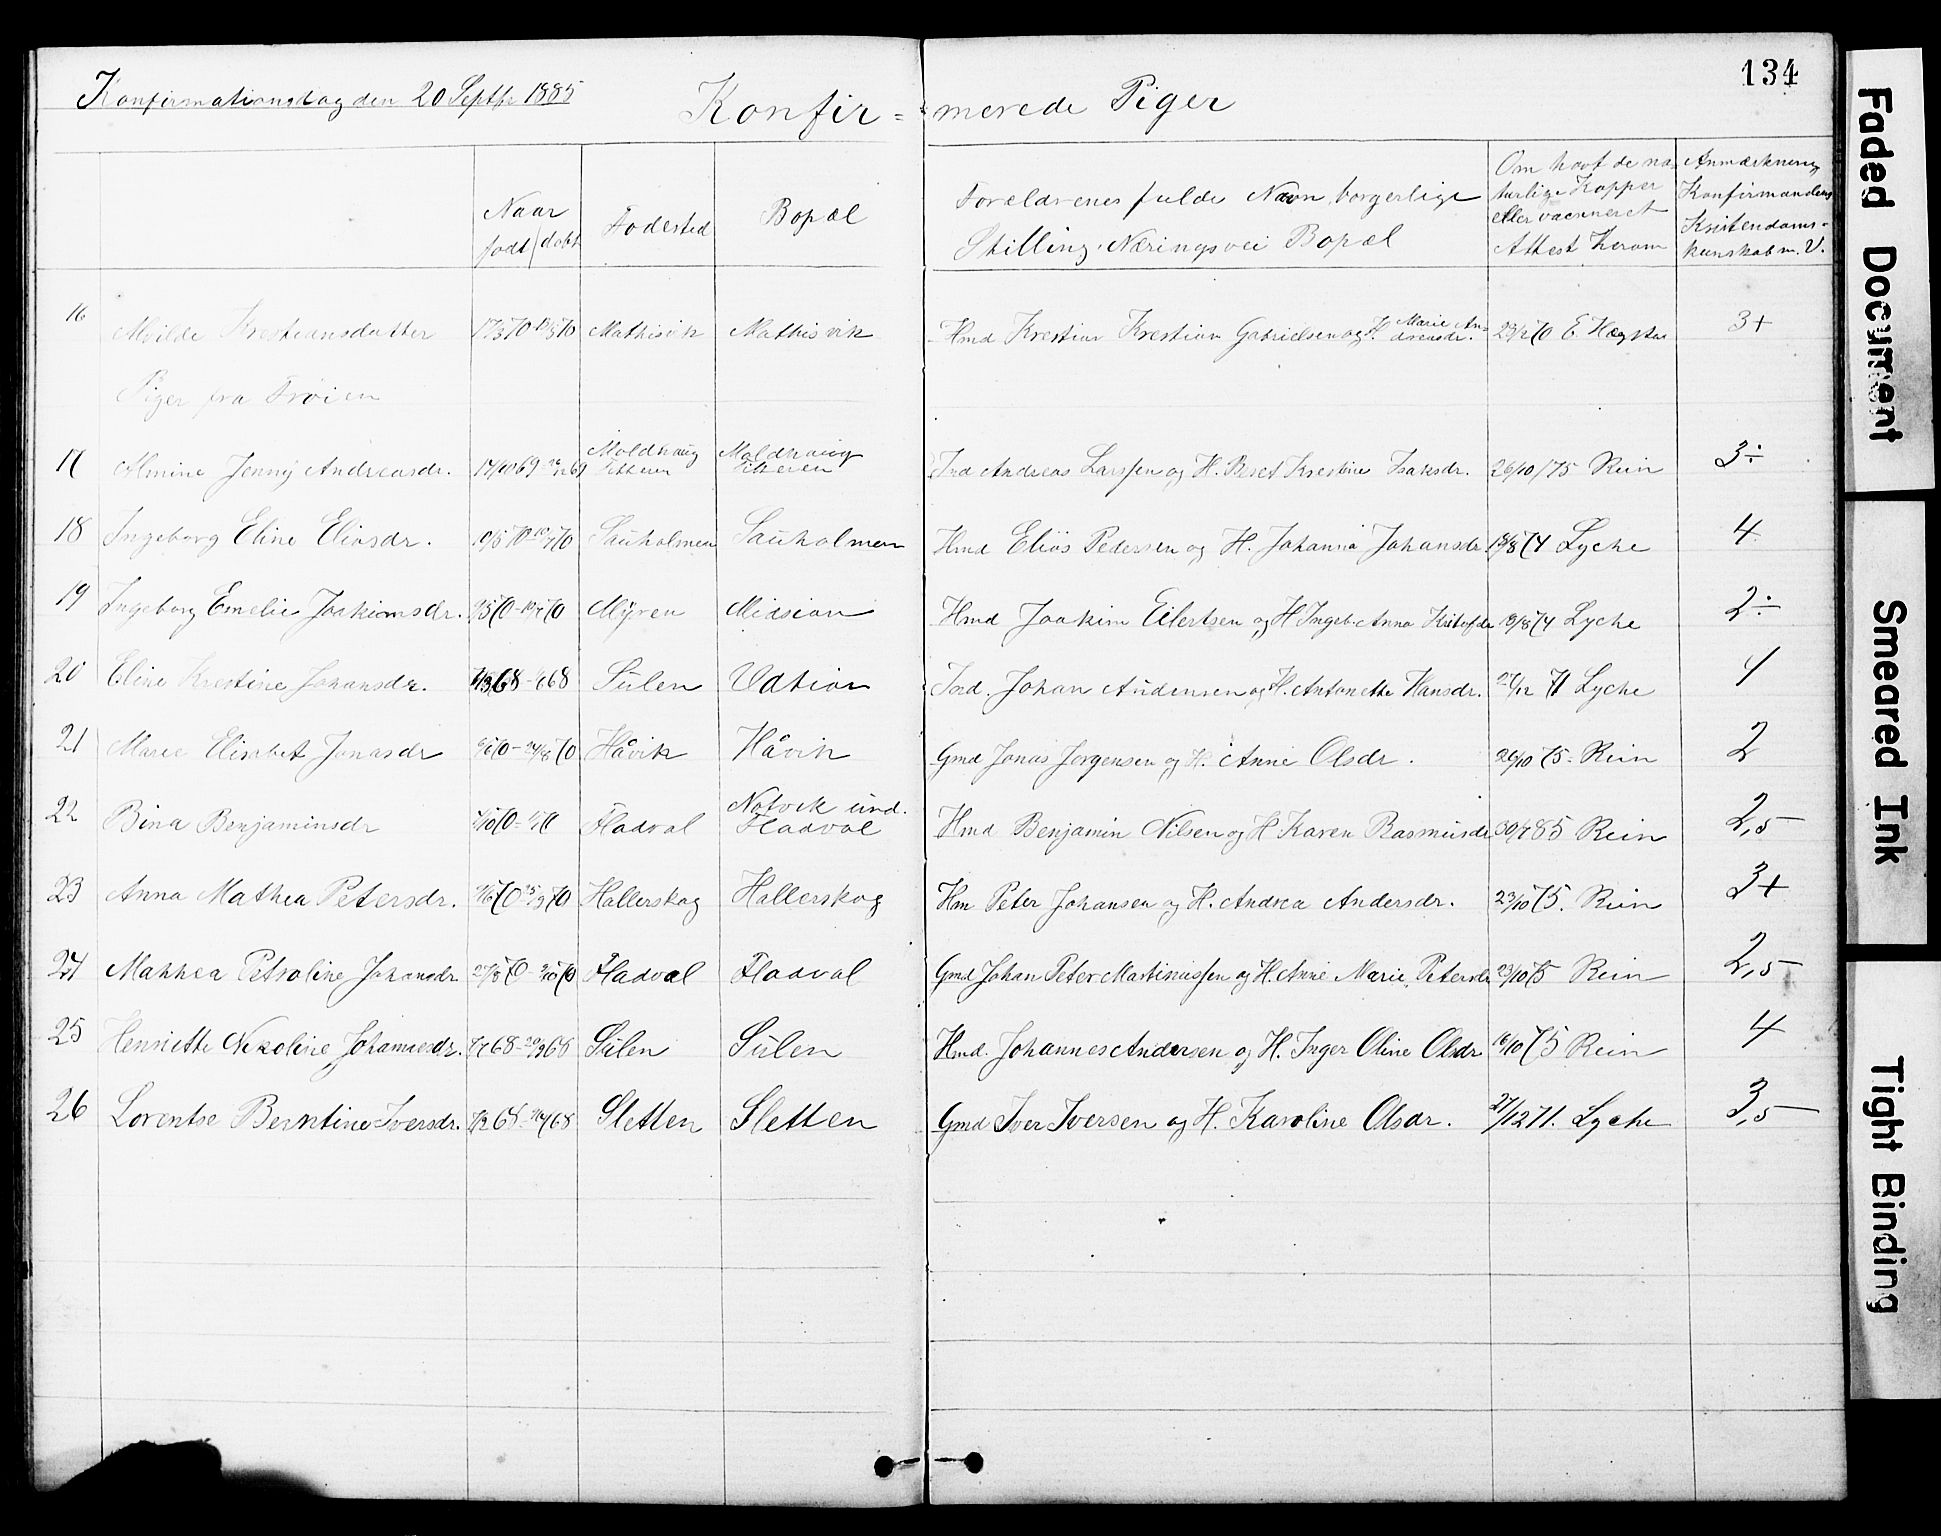 134
Konfirmationsdag den 20 Septbr 1885
Konfir = merede Piger
Naar født / døbt
Fødested
Bopæl
Forældrenes fulde Navn, borgerlige
Stilling, Næringsvei Bopæl
Om havt de na-
turlige Kopper
eller vaccineret
Attest herom
Anmærkning
Konfirmandens
Kristendoms-
kunskab m. V.
16 Krestiansdatter Mathisvik Mathisvik Hmd Krestian Krestian Gabrielsen og H. Marie An-
dreasdr. 3+
Piger fra Frøien
17 Almine Jenny Andreasdr. Moldhaug Titteren Moldhaug Titteren Andreas Larssen og H. Beret Krestine Isaksdr. 26/10/75 Rein 3÷
18 Ingeborg Eline Eliasdr. Sauholmen Sauholmen Hmd Elias Pedersen og H. Johanna Johansdr. 18/8 74 Lyche 4
19 Ingeborg Emelie Joakimsdr. Myren Midsian Hmd Joakim Eilertsen og H Ingeb. Anna 19/8 74 Lyche 2÷
20 Eline Krestine Johansdr. Sulen Udtian Johan Andersen og H. Antonette Hansdr. 71 Lyche
21 Marie Elisabet Jonasdr Håvik Håvik Gmd Jonas Jørgensen og H. Anne Olsdr. 26/10 75. Rein 2
22 Bina Benjaminsdr Fladval Notvik und. Fladval Hmd Benjamin Nilsen og H Karen Rasmusdr 30/7 85 Rein 2,5
23 Anna Mathea Petersdr. Hallerskog Hallerskog Hm Peter Johansen og H. Andrea Andersdr. 23/10 75. Rein 3+
24 Mathea Petroline Johansdr. Fladval Fladval Gmd Johan Peter Martinussen og H. Anne Marie Petersdr 23/10 75 Rein 2,5
25 Henriette Nikoline Johannesdr. Sulen Sulen Hmd. Johannes Andersen og H. Inger Oline Olsdr 16/10 75 Rein 4
26 Lorentse Berntine Iversdr. Sletten Sletten Gmd Iver Iversen og H. Karoline Olsdr. 27/12 71. Lyche 3,5
Faded Document
Smeared Ink
Tight Binding